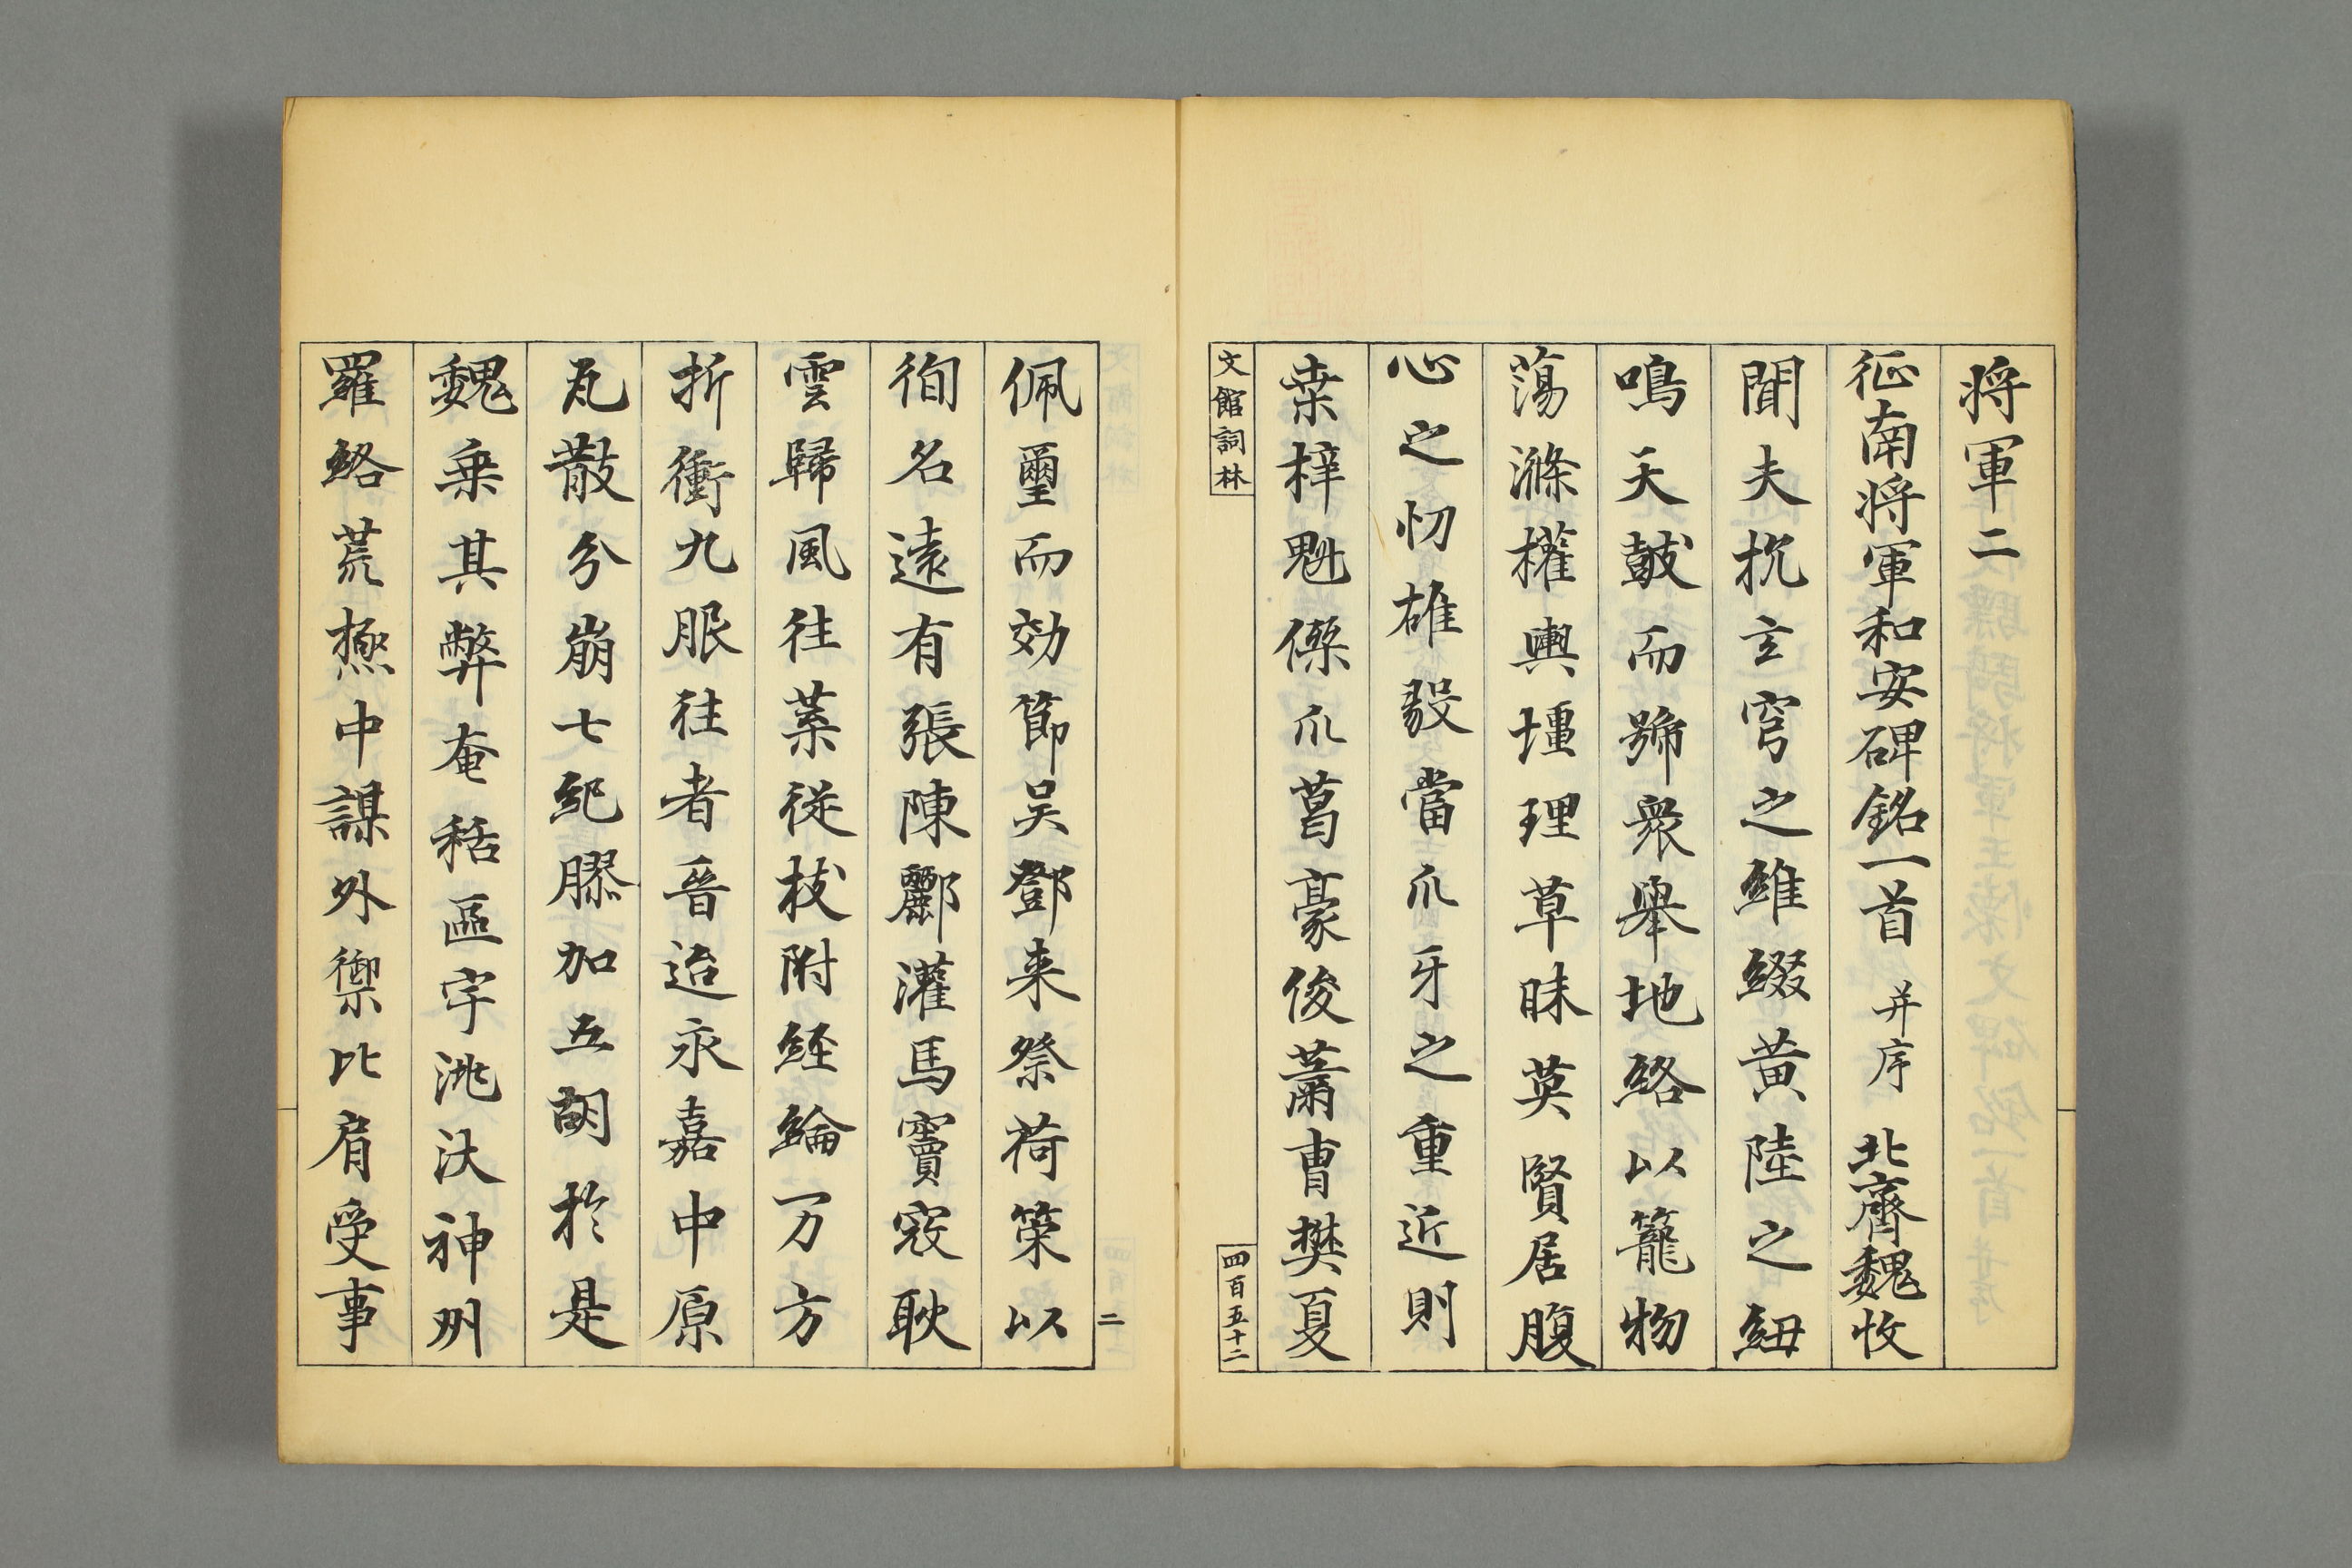 将軍二
征南将軍和安碑銘一首 并序 北齊魏收
聞夫抗玄穹之維綴黄陸之紐
鳴天皷而號衆舉地絡以籠物
蕩滌權輿壃理草昧英賢居腹
心之切雄毅當爪牙之重近則
桒梓魁傑爪葛豪俊蕭曹樊夏
文館詞林
四百五十二
佩璽而効節吴鄧来祭荷策以
徇名遠有張陳酈灌馬竇寇耿
雲歸風往葉從枝附経綸万方
折衝九服往者晉迨永嘉中原
瓦散分崩七紀膠加五胡於是
魏乗其弊奄秳區宇洮汰神州
羅絡荒極中謀外禦比肩受事
二